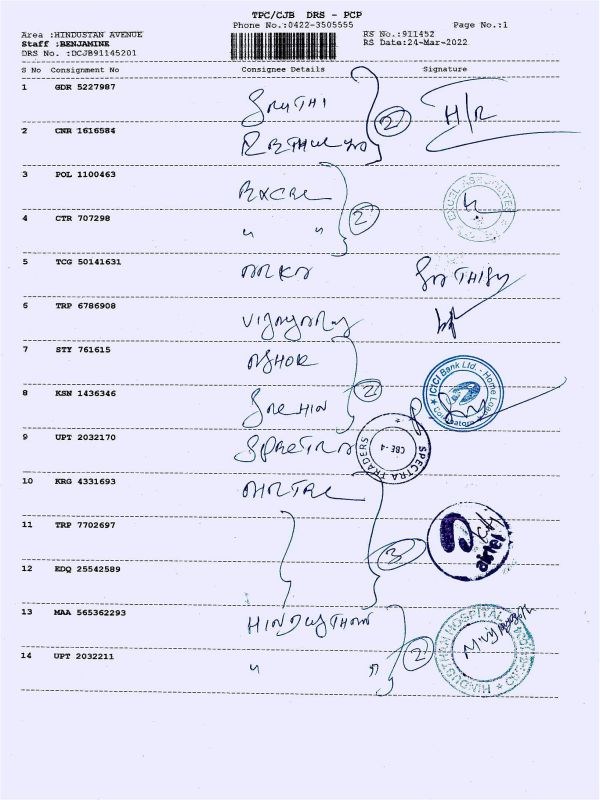 TPC/CJB DRS - PCP
Phone No.:0422-3505555
Page No.:1
Area :HINDUSTAN AVENUE
Staff :BENJAMINE
DRS No. :DCJB91145201
RS No.:911452
RS Date:24-Mar-2022
S No Consignment No Consignee Details Signature
1 GDR 5227987 SRUTHI
2 CNR 1616584
2 H/R
3 POL 1100463 EXCEL
EXCEL ASSOCIATES
4 CTR 707298 " "
2
5 TCG 50141631
6 TRP 6786908
7 STY 761615 ASHOK
8 KSN 1436346
2
ICICI Bank Ltd. - Home Loan
Coimbatore
9 UPT 2032170 SPECTRA
SPECTRA TRADERS
CBE - 4
10 KRG 4331693 AIRTEL
11 TRP 7702697
3
airtel
12 EDQ 25542589
13 MAA 565362293 HINDUSTHAN
HINDUSTHAN HOSPITAL
14 UPT 2032211 " "
2